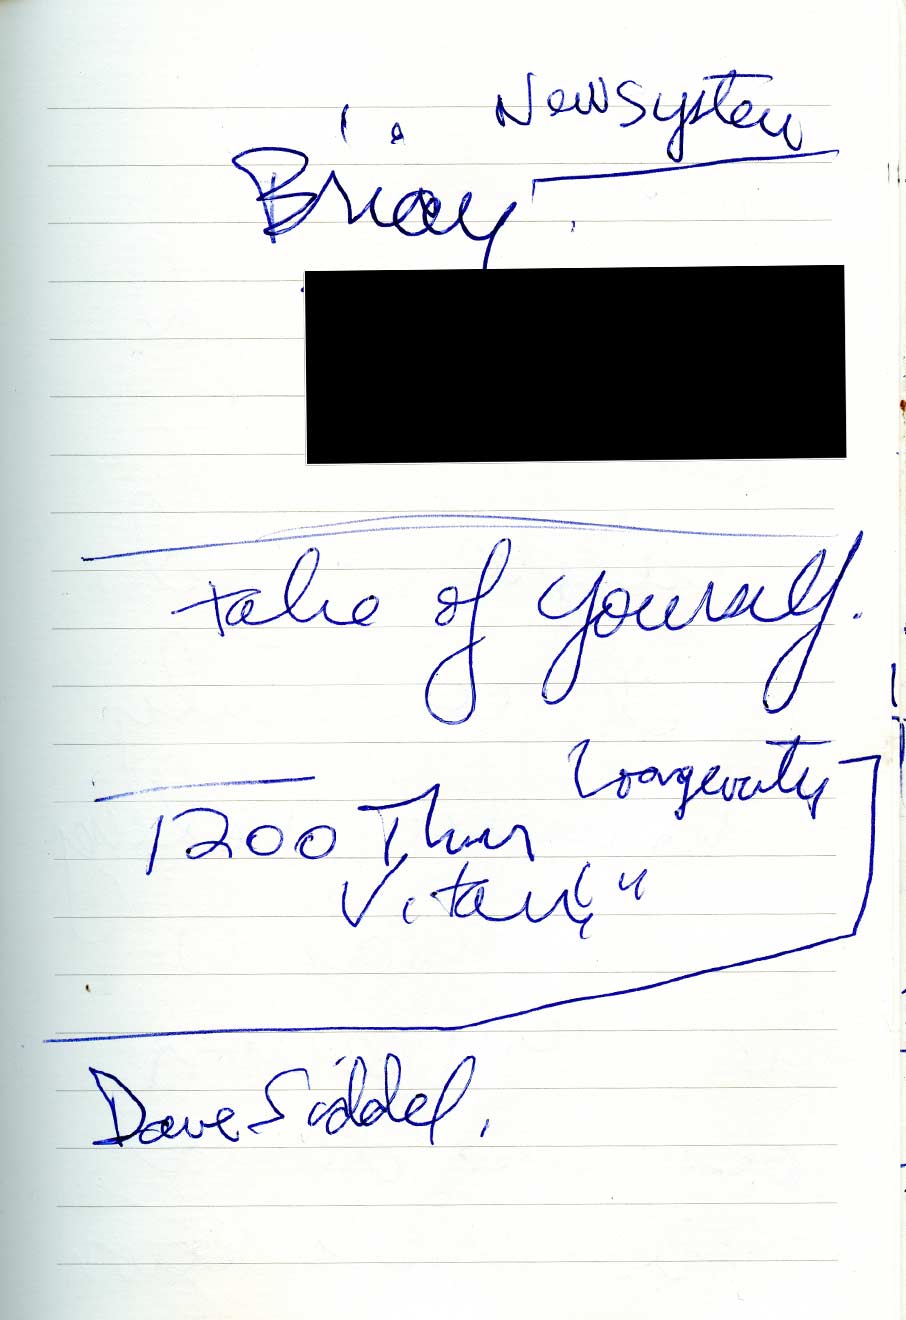 New System
Brian
take of yourself.
Longevity
1200
Dave Siddel.